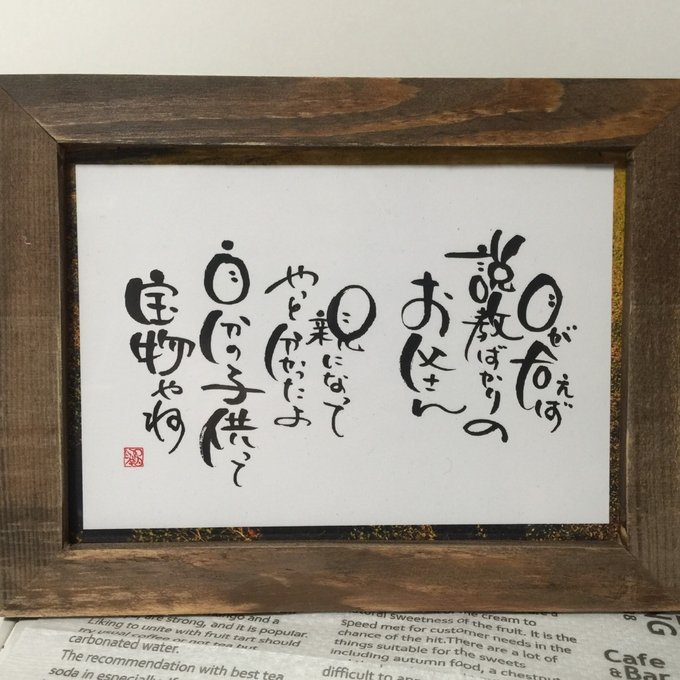 目が合えば
説教ばかりの
お父さん
親になって
やっと分かったよ
自分の子供って
宝物やね
and a
are strong, and it is popular.
Liking to unite with fruit tart should
try usual coffee or not tea but
carbonated water.
The recommendation with best tea
soda in especially,
cream to
sweetness of the fruit. It is the
speed met for customer needs in the
chance of the hit.There are a lot of
things suitable for the sweets
including autumn food, a chestnut
difficult to
Cafe
&Bar